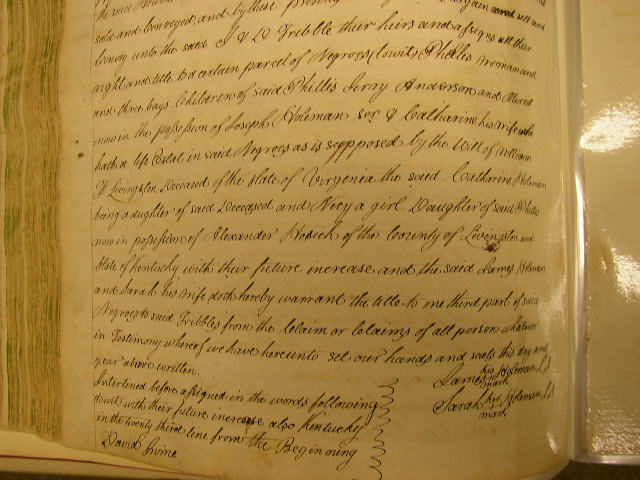 the said
sold and conveyed, and by these present bargain sell and
convey unto the said J & D Tribble their heirs and assigns all their
right and title to a certain parcel of Negroes (towit) Phillis woman and
and three boys Children of said Phillis Jerry Anderson and
now in the possession of Joseph Holeman ser & Catharine his wife who
hath a life Estat in said Negroes as is sepposed by the Will of William
Livingston Deceased of the state of Virginia the said Catharine Holeman
being a daghter of said Deceased and Nicy a girl Daughter of said Phillis
now in possession of Alexander of the County of Levingston and
State of Kentucky with their future increase and the said James Holeman
and Sarah his wife doth hereby warrant the title to one third part of said
Negroes to said Tribbles from the Claim or Claims of all person whatever
in Testimony whereof we have hereunto set our hands and seals this day and
year above written.
James his mark Holeman L.S
Sarah her mark Holeman L.S
Interlined before assigned in the words following
towit with their future increase also Kentucky
in the twenty third line from the Beginning
David Irvine